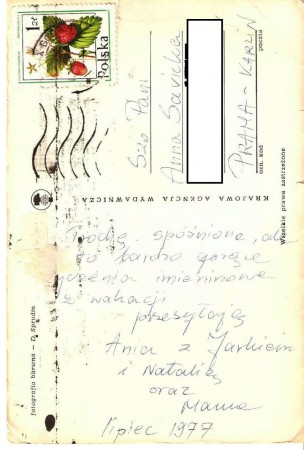 1 zł
Polska
Sza Pani
Anna Savicka
PRAHA - KARLIN
ozn. kod
poczta
KRAJOWA AGENCJA WYDAWNICZA
Wszelkie prawa zastrzeżone
fotografia barwna — D. Sprudin
Trochę spóźnione, ale
za to bardzo gorące
życzenia imieninowe
z wakacji
przesyłają
Ania z Jurkiem
i Natalią
oraz
Mama
lipiec 1977